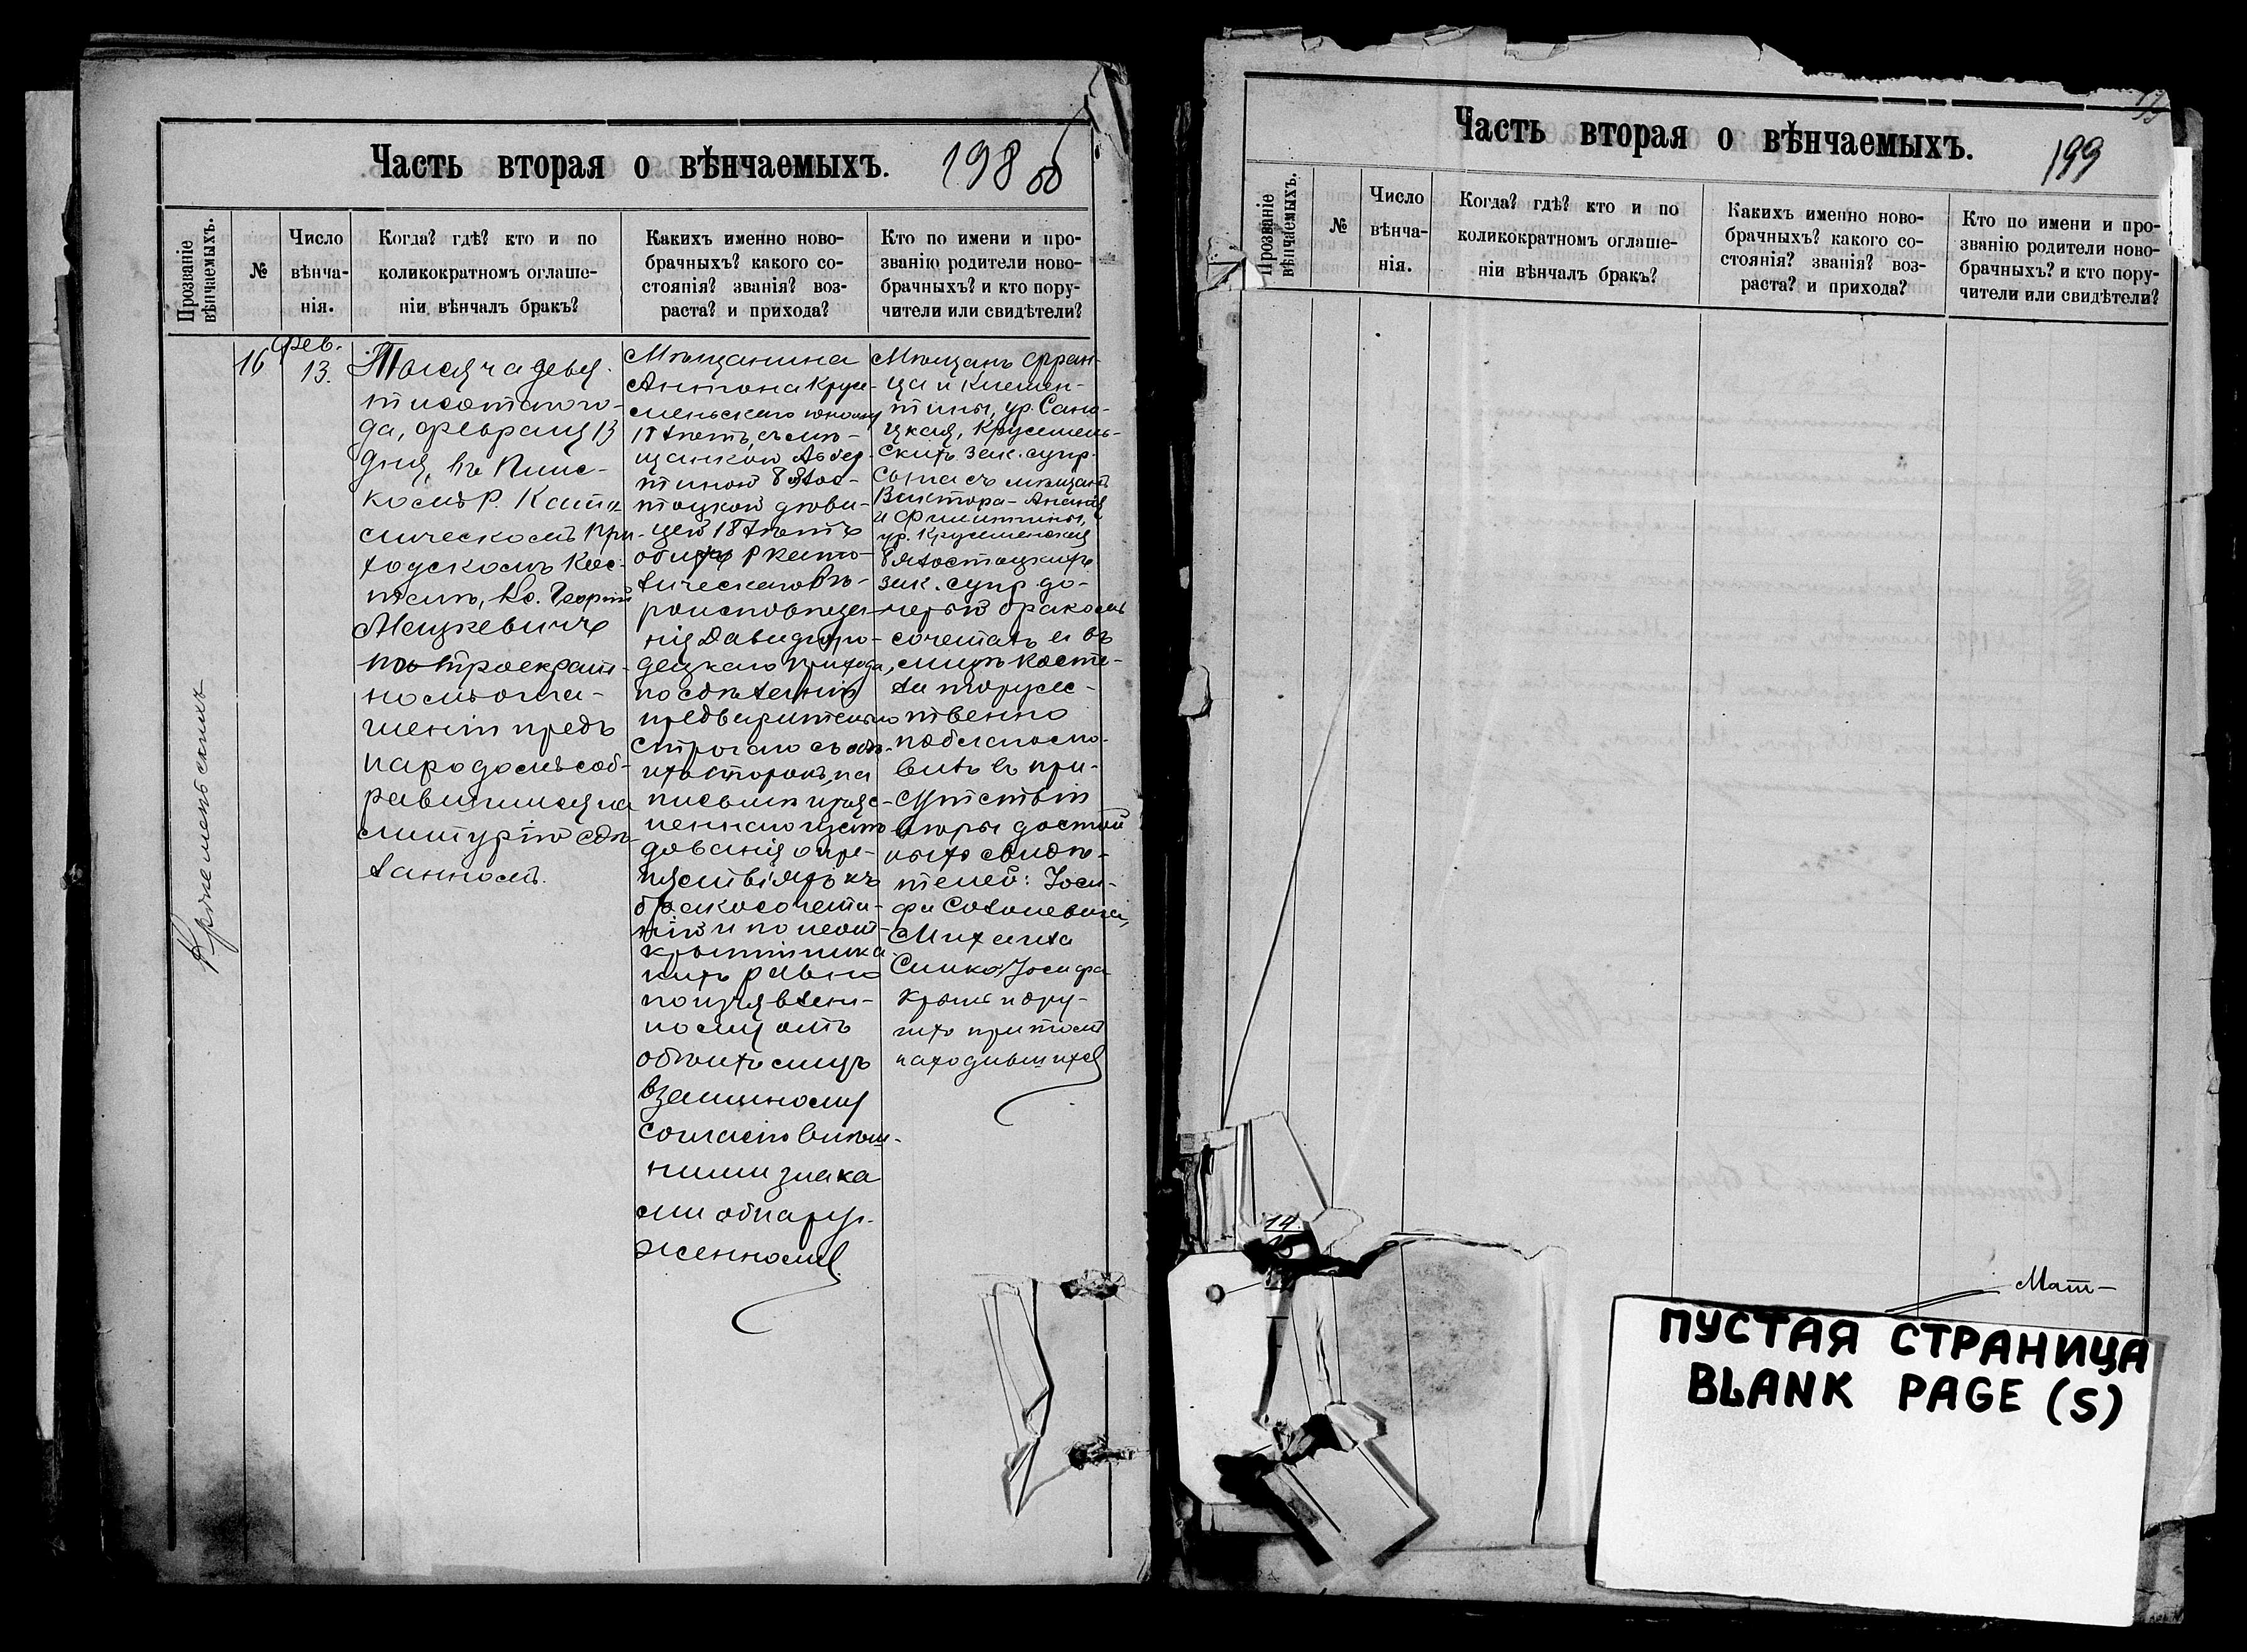 Часть вторая о вѣнчаемыхъ.
198
Прозваніе вѣнчаемыхъ.
№
Число вѣнча-
нія.
Когда? гдѣ? кто и по
коликократномъ оглаше-
ніи вѣнчалъ бракъ?
Какихъ именно ново-
брачныхъ? какого со-
стоянія? званія? воз-
раста? и прихода?
Кто по имени и про-
званію родители ново-
брачныхъ? и кто пору-
чители или свидѣтели?
16
Фев.
13.
Тысяча девя-
тисотаго го-
да, февраля 13
дня, въ Пинс-
комъ Р. Като
лическомъ При-
ходскомъ Кос-
телѣ, Кс. Георгій
Мацкевичъ
по троекрат-
номъ огла-
шеніи предъ
народомъ соб-
равшимся на
литургію сдѣ-
ланномъ.
Мѣщанина
Антона Круше-
меньскаго юношу
18 лѣтъ, съ мѣ-
щанкой Альбер-
тиною
дѣви-
цей 18 лѣтъ
обоихъ Р Като-
лическаго вѣ-
роисповѣда-
нія Давидгоро-
децкаго прихода,
по сдѣланіи
предварительно
строгаго съ обѣ-
ихъ сторонъ, на
письмѣ
неннаго изслѣ
дованія о пре-
пятствіяхъ къ
бракосочета-
нію и по неот-
крытіи ника
кихъ равно
по изъявлен-
ному отъ
обоихъ лицъ
взаимному
согласію внѣш-
ними знака
ми обнару-
женному.
Мѣщанъ Фран-
ца и Клемен-
тины, ур. Сано-
цкая, Крушемень-
скихъ зак. супр.
сына съ мѣщанъ
Виктора-
и Филиппины,
ур.
зак. супр. до-
черью бракомъ
сочеталъ и въ
лицѣ косте-
ла торжес-
твенно
поблагосло-
вилъ въ при-
сутствіи
вѣры достой
ныхъ свидѣ-
телей: Іоси-
фа
Михаила
Іосифа
и дру-
гихъ при томъ
находившихся
Часть вторая о вѣнчаемыхъ.
199
Прозваніе вѣнчаемыхъ.
№
Число вѣнча-
нія.
Когда? гдѣ? кто и по
коликократномъ оглаше-
ніи вѣнчалъ бракъ?
Какихъ именно ново-
брачныхъ? какого со-
стоянія? званія? воз-
раста? и прихода?
Кто по имени и про-
званію родители ново-
брачныхъ? и кто пору-
чители или свидѣтели?
14
Мат-
ПУСТАЯ СТРАНИЦА
BLANK PAGE (S)